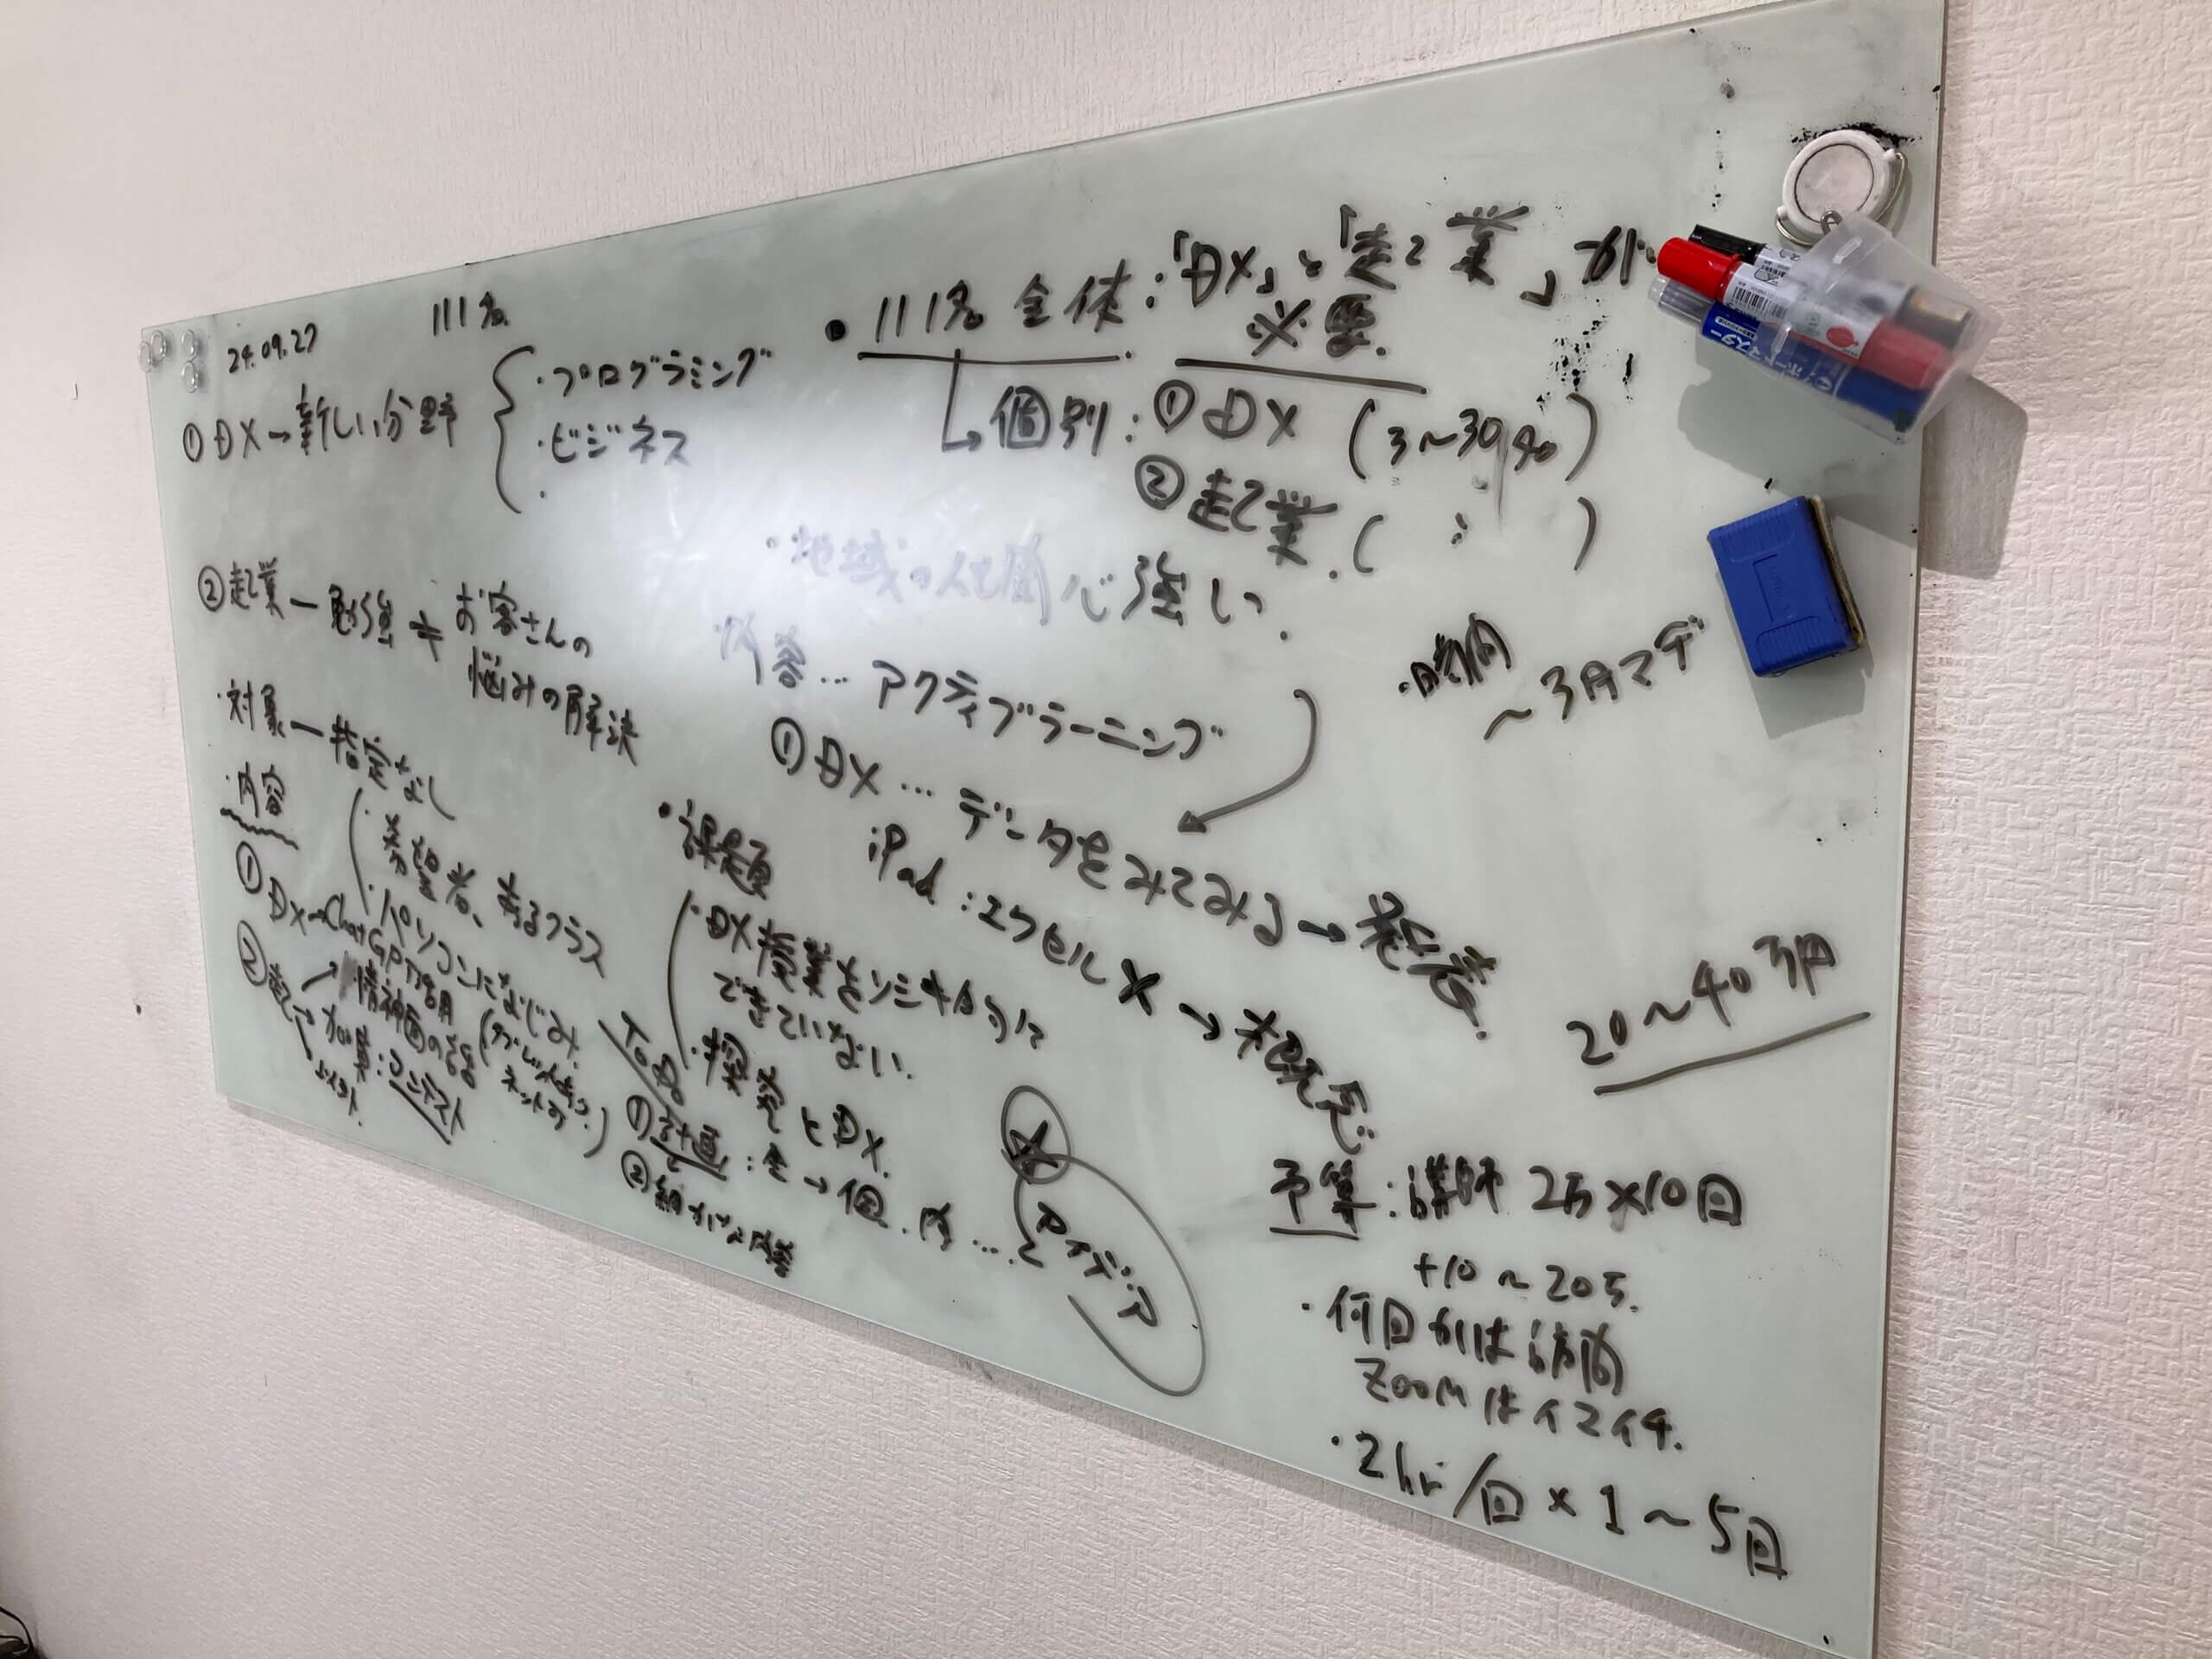 24.09.27
111名
①DX→新しい分野
・プログラミング
・ビジネス
②起業ー勉強≠お客さんの
悩みの解決
・対象ー指定なし
・希望者、あるクラス
・パソコンになじみ
・内容
①DX→ChatGPT活用
②起→精神面の話
加賀:コンテスト
・課題
・DX授業をソミキ向け
できていない.
・探究とDX.
To Do
①計画:全→個.内…
②細かい内容
アイデア
・111名 全体:「DX」と「起業」が
必要.
個別:①DX (3〜30,40)
②起業.( 〃 )
・地域の人も関心強い.
・内容…アクティブラーニング
①DX…データをみてみる→発表.
iPad:エクセル✕→
・時間
〜3月マデ
20〜40万円
予算:講師 2万×10回
+10〜20万.
・何回かは訪問
ZOOMはイマイチ.
・2hr/回×1〜5回
ボードマスター